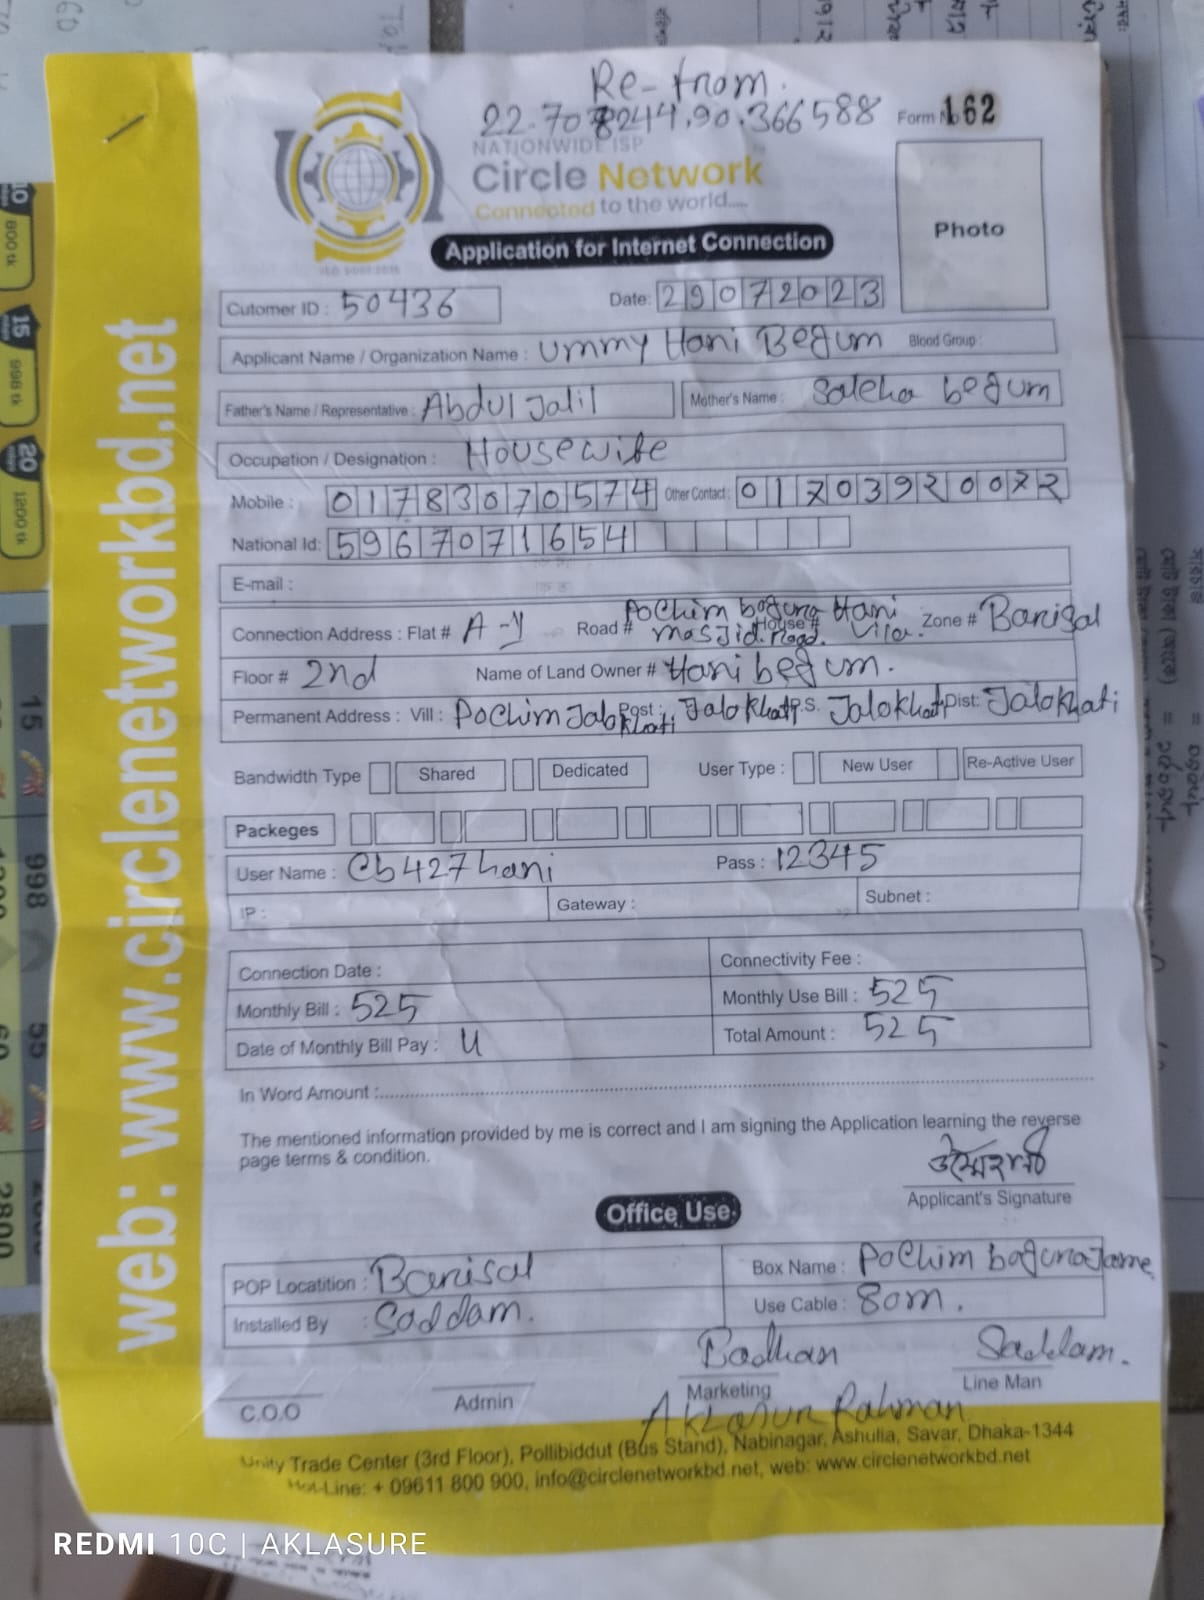 Re-from.
22.708244,90.366588 Form No 162
NATIONWIDE ISP
Circle Network
Connected to the world....
Photo
Application for Internet Connection
Cutomer ID : 50436 Date: 29072023
Applicant Name / Organization Name : Ummy Hani Begum Blood Group :
Father's Name / Representative : Abdul Jalil Mother's Name : Saleha begum
Occupation / Designation : Housewife
Mobile : 01783070574 Other Contact: 01703920022
National Id: 5967071654
E-mail :
Connection Address : Flat # A-4 Road # Pochim boguna masjid. Road. House # Hani Vila. Zone # Barisal
Floor # 2nd Name of Land Owner # Hani begum.
Permanent Address : Vill : Pochim Jalokhati Post: Jalokhati P.S. Jalokhati Dist: Jalokhati
Bandwidth Type Shared Dedicated User Type : New User Re-Active User
Packeges
User Name : Cb427hani Pass : 12345
IP : Gateway : Subnet :
Connection Date : Connectivity Fee :
Monthly Bill : 525 Monthly Use Bill : 525
Date of Monthly Bill Pay : 4 Total Amount : 525
In Word Amount :
The mentioned information provided by me is correct and I am signing the Application learning the reverse
page terms & condition.
Applicant's Signature
Office Use
POP Locatition : Barisal Box Name : Pochim bogunaJame
Installed By : Saddam. Use Cable : 80m.
Badhan Saddam.
C.O.O Admin Marketing Line Man
Aklasur Rahman
Unity Trade Center (3rd Floor), Pollibiddut (Bus Stand), Nabinagar, Ashulia, Savar, Dhaka-1344
Hot-Line: + 09611 800 900, info@circlenetworkbd.net, web: www.circlenetworkbd.net
web: www.circlenetworkbd.net
REDMI 10C | AKLASURE